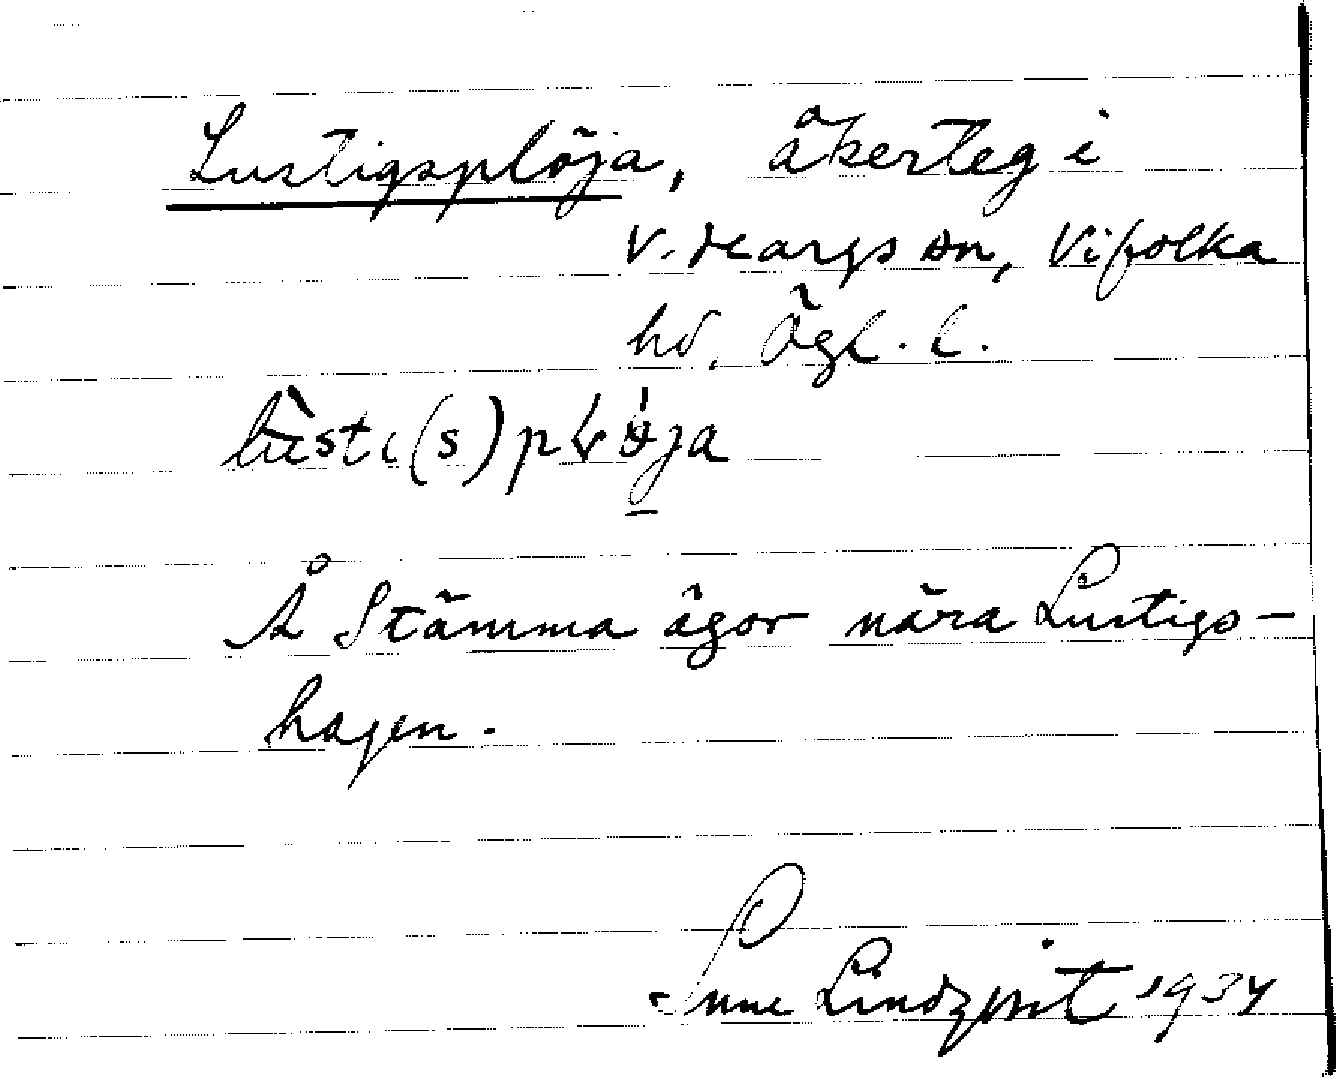 Lustigsplöja, åkerteg i
V. Hargs sn, Vifolka
hd, Ögl. l.
Å Stämma ägor nära Lustigs-
hagen.
Sune Lindqvist 1934